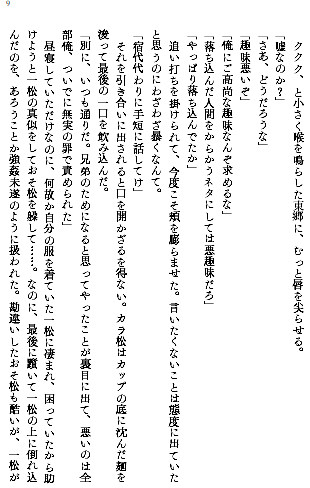 9
ククク、と小さく喉を鳴らした東郷に、むっと唇を尖らせる。
「嘘なのか？」
「さあ、どうだろうな」
「趣味悪いぞ」
「俺にご高尚な趣味なんぞ求めるな」
「落ち込んだ人間をからかうネタにしては悪趣味だろ」
「やっぱり落ち込んでたか」
追い打ちを掛けられて、今度こそ頬を膨らませた。言いたくないことは態度に出ていた
と思うのにわざわざ暴くなんて。
「宿代代わりに手短に話してけ」
それを引き合いに出されると口を開かざるを得ない。カラ松はカップの底に沈んだ麺を
浚って最後の一口を飲み込んだ。
「別に、いつも通りだ。兄弟のためになると思ってやったことが裏目に出て、悪いのは全
部俺、ついでに無実の罪で責められた」
昼寝していただけなのに、何故か自分の服を着ていた一松に凄まれ、困っていたから助
けようと一松の真似をしておそ松を騙して……。なのに、最後に躓いて一松の上に倒れ込
んだのを、あろうことか強姦未遂のように扱われた。勘違いしたおそ松も酷いが、一松が